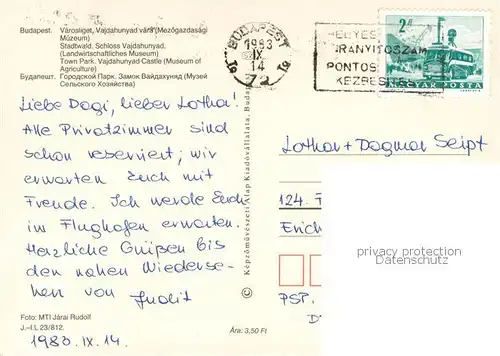 Budapest. Városliget, Vajdahunyad vára (Mezőgazdasági
Múzeum)
Stadtwald. Schloss Vajdahunyad,
(Landwirtschaftliches Museum)
Town Park, Vajdahunyad Castle (Museum of
Agriculture)
Будапешт. Городской Парк. Замок Вайдахунид (Музей
Сельского Хозяйства)
Liebe Dagi, lieber Lothar!
Alle Privatzimmer sind
schon reserviert; wir
erwarten Euch mit
Freude. Ich werde Euch
im Flughafen erwarten.
Herzliche Grüßen bis
den nahen Wiederse-
hen von Judit
Foto: MTI Járai Rudolf
J.-I.L 23/812.
Ára: 3,50 Ft
1983.IX.14.
© Képzőművészeti Alap Kiadóvállalata, Budap
BUDAPEST
1983
IX
14
72
19 19
HELYES
IRÁNYÍTÓSZÁM
PONTOS
KÉZBESÍTÉS
2 Ft
MAGYAR POSTA
Lothar + Dagmar Seipt
124. F
Erich
PSP.
privacy protection
Datenschutz